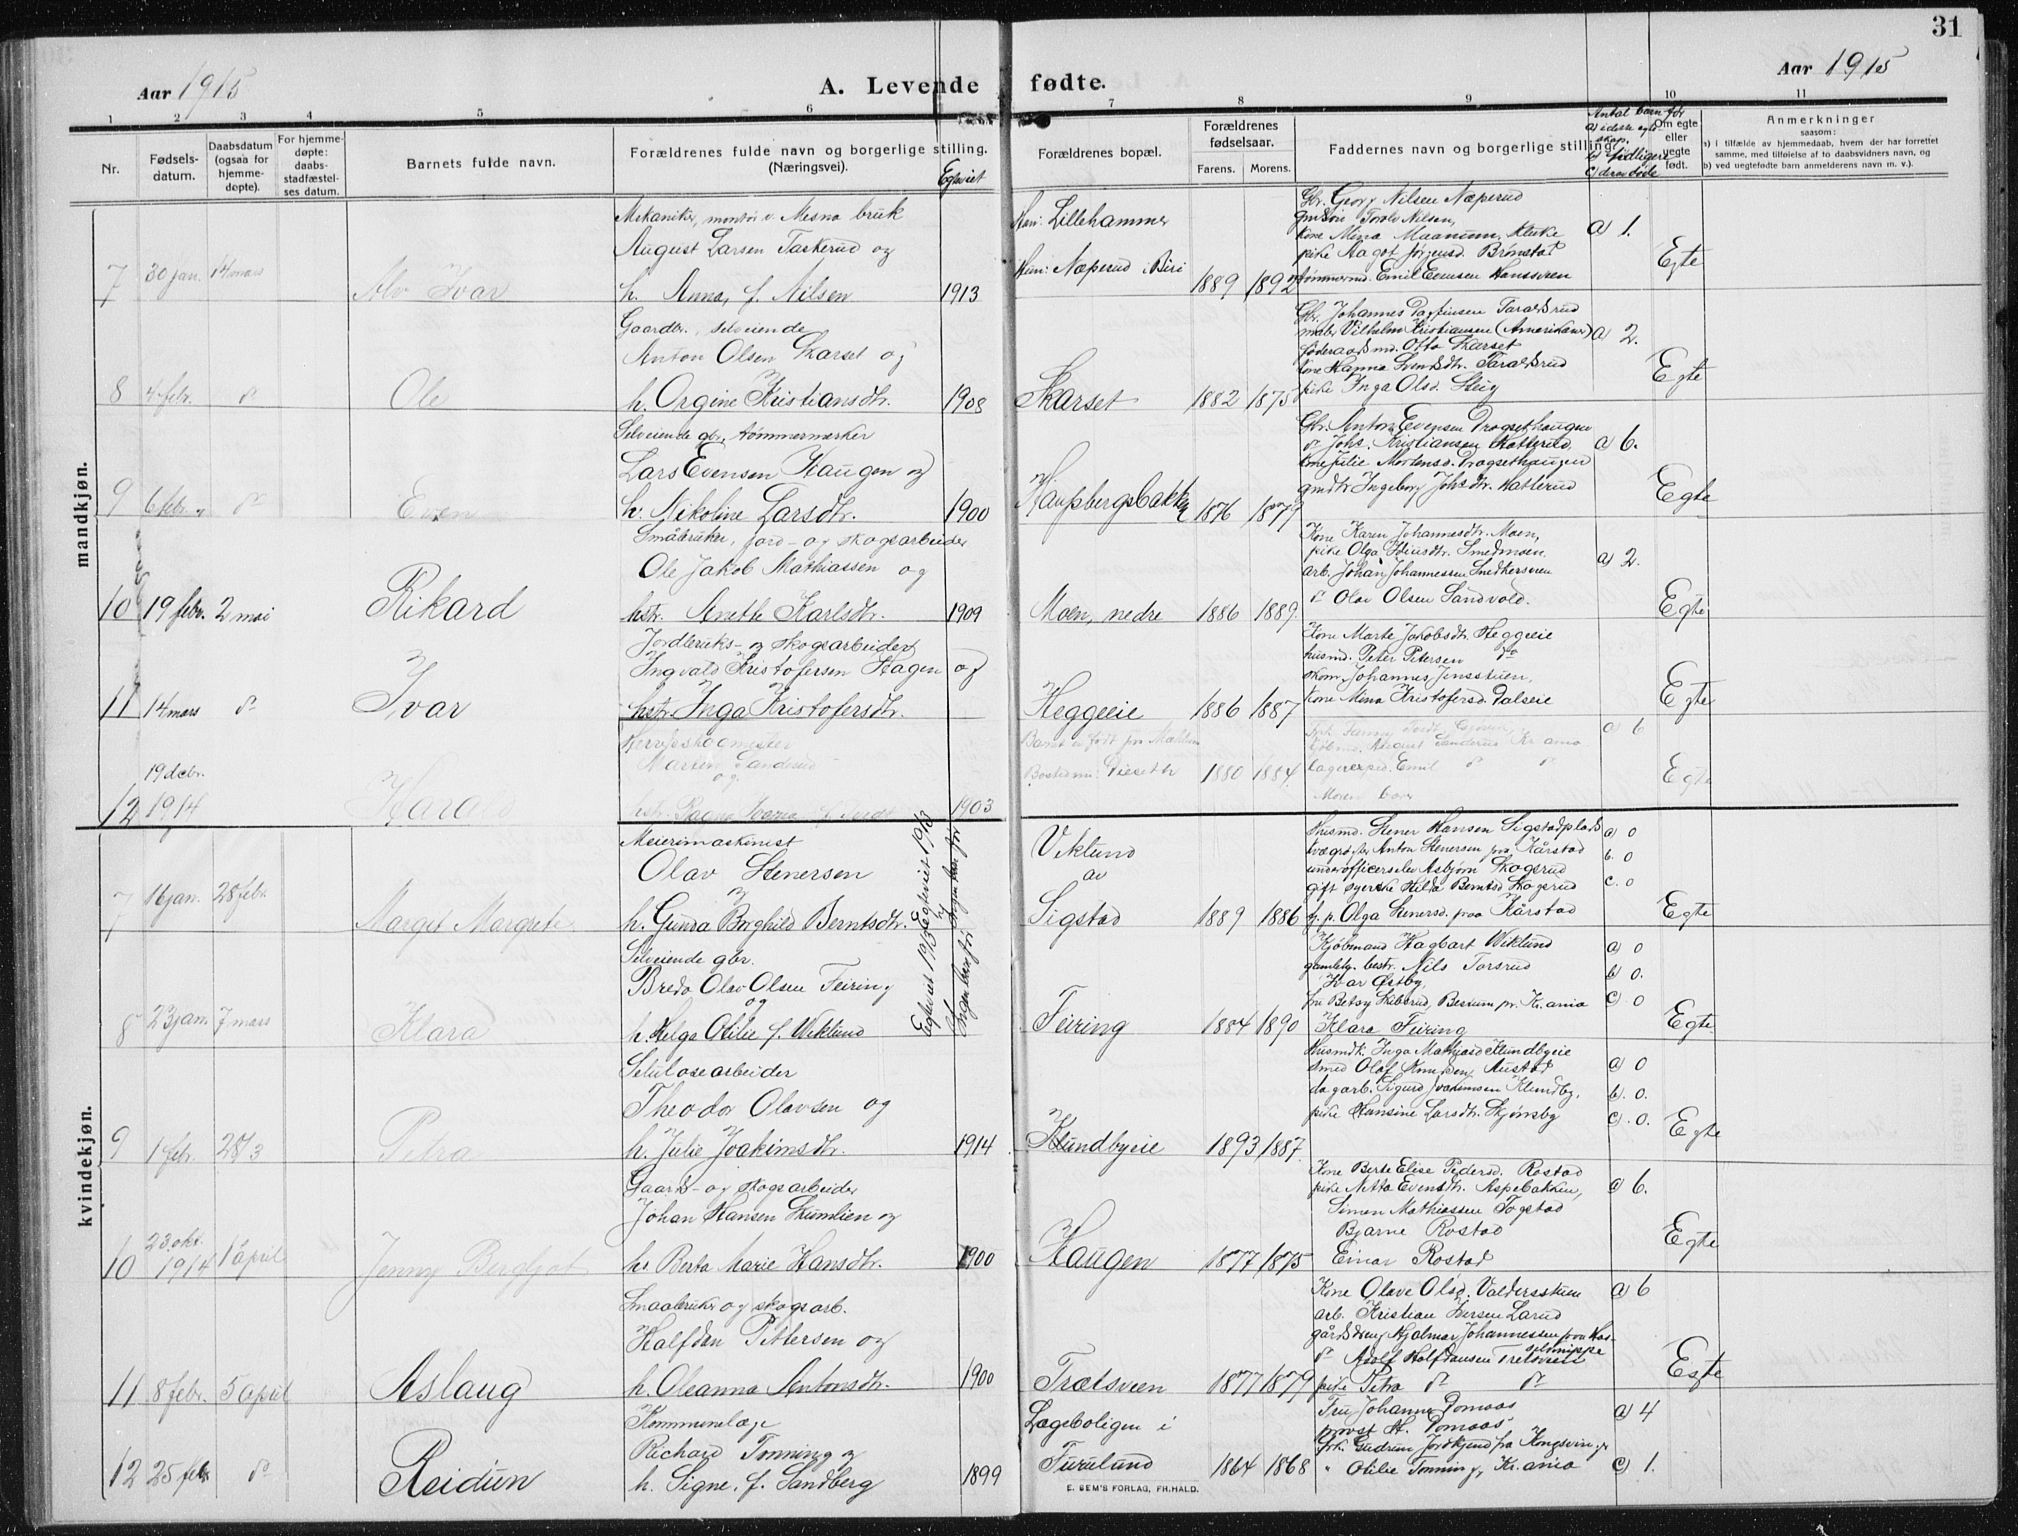 31
Aar 1915
A. Levende fødte.
Aar 1915
1 2 3 4 5 6 7 8 9 10 11
Nr.
Fødsels-
datum.
Daabsdatum
(ogsaa for
hjemme-
døpte).
For hjemme-
døpte:
daabs-
stadfæstel-
ses datum.
Barnets fulde navn.
Forældrenes fulde navn og borgerlige stilling.
(Næringsvei).
Egteviet
Forældrenes bopæl.
Forældrenes
fødselsaar.
Farens. Morens.
Faddernes navn og borgerlige stilling.
Antal barn før
a) i dette egte-
skap.
b) tidligere
c) derav døde
Om egte
eller
uegte
født.
Anmerkninger
saasom:
a) i tilfælde av hjemmedaab, hvem der har forrettet
samme, med tilføielse af to daabsvidners navn, og
b) ved uegtefødte barn anmelderens navn m. v.).
mandkjøn.
7 30 jan. 14 mars Alv Ivar
Mekaniker, montør v. Mesna bruk
August Larsen Taskerud og
h. Anna, f. Nilsen 1913
Lillehammer
Næperud i Biri 1889 1892
Gbr. Georg Nilsen Næperud
Torolv Nilsen,
kone Mina Maanum, Kluke
pike Aagot Jørgensd. Brønstad
tømmermd. Emil Evensen Hanssveen
a) 1. Egte
8 4 febr. do Ole
Gaardbr., selveiende
Anton Olsen Skarset og
h. Orgine Kristiansdtr. 1908
Skarset 1882 1875
Gbr. Johannes Dagfinsen Taraldsrud
Vilhelm Kristiansen (Amerikaner)
føderaadsmd. Otto Skarset
kone Hanna Svendsdtr. Taraldsrud
pike Inga Olsd. Stuy
a) 2. Egte
9 6 febr. do Even
Selveiende gbr, tømmermerker
Lars Evensen Haugen og
h. Nikoline Larsdtr. 1900
1876 1879
Gbr. Anton Evensen Dragsethaugen
do Johs. Kristiansen Hatterud,
kone Julie Mortensd. Dragsethaugen
gmdtr Ingeborg Johsdtr. Hatterud
a) 6. Egte
10 19 febr. 2 mai Rikard
Småbruker, jord- og skogsarbeider
Ole Jakob Mathiassen og
hstr. Anethe Karlsdtr. 1909
Moen, nedre 1886 1889.
Kone Karen Johannesdtr. Moen,
pike Olga Smedmoen.
arb. Johan Johannessen Snedkersveen
do Olav Olsen Sandvold.
a) 2. Egte
11 14 mars do Ivar
Jordbruks- og skogsarbeider
Ingvald Kristofersen Hagen og
hstr. Inga Kristofersdtr.
Heggeeie 1886 1887
Kone Marte Jakobsdtr. Heggeeie
husmd. Peter Petersen do
skom. Johannes Jensstuen,
kone Mina Kristofersd. Dalseie
Egte
12 19 dcbr. 1914 Harald
Herredsskogmester
Marten Sanderud
og
1903
Barnet er født paa
1880 1884.
August Sanderud Kr.ania
lagerexped. Emil do do
Moren bar
a) 6 Egte
kvindekjøn.
7 16 jan. 28 febr. Margit Margrete
Meierimaskinist
Olav Stenersen
og
h. Gunda Borghild Berntsdtr.
Egteviet 1913
Ingen barn før
Viklund
av
Sigstad 1889 1886
Husmd. Stener Hansen Sigstadplads
Anton Stenersen paa Kårstad
underofficerselev Asbjørn Skogsrud
gift syerske Hilda Berntsd Skogsrud
g. p. Olga Stenersd. paa Kårstad
a) 0
b. 0
c. 0 Egte
8 23 jan. 7 mars Klara
Selveiende gbr.
Bredo Olav Olsen Feiring
og
h. Helga Otilie f. Wiklund
Egteviet 1913
Ingen barn før
Feiring 1884 1890
Kjøbmand Hagbart Wiklund
gamleg. bestr. Nils Torsrud
Ivar Østby,
fru Betsy Skiberud, Bestum pr. Kr.ania
Klara Feiring
a) 0
b) 0.
c) 0 Egte
9 1 febr. 28/3 Petra
Selulosearbeider
Theodor Olavsen og
h. Julie Joakimsdtr. 1914
Klundbyeie 1893 1887.
Husmdk. Inga Mathiasd Klundbyeie
smed Olaf Knudsen, Austad
dagarb. Sigurd Joakimsen Klundby,
pike Hansine Larsdtr. Skjønsby
a) 0
b. 0.
c). 0. Egte
10 23. okt. 1914 1 april Jenny Bergljot
Gaards- og skogsarbeider
Johan Hansen Skumlien og
h. Berta Marie Hansdtr. 1900
Haugen 1877 1875
Kone Berte Elise Pedersd. Rostad
pike Netta Evensdtr. Aspebakken,
Simen Mathiassen Fogstad
Bjarne Rostad
Einar Rostad
a) 6. Egte
11 8 febr. 5 april Aslaug
Smaabruker og skogsarb.
Halfdan Pettersen og
h. Oleanna Antonsdtr. 1900
Trætsveen 1877 1879
Kone Olave Olsd. Valdersstuen
arb. Kristian Iversen Larud
gårdsdreng Hjalmar Johannessen
do Adolf Halfdansen Tretsveen
pike Petra do do
a) 6 Egte
12 25 febr. do Reidun
Kommunelæge
Richard Tønning og
h. Signe, f. Sandberg 1899
Lægeboligen i
Furulund 1864 1868
Fru Johanne Domaas
provst H. Domaas
frk. Gudrun fra Kongsvinger
" Otilie Tønning, Kr.ania
a) 4
c) 1.
E. SEM'S FORLAG, FR.HALD.